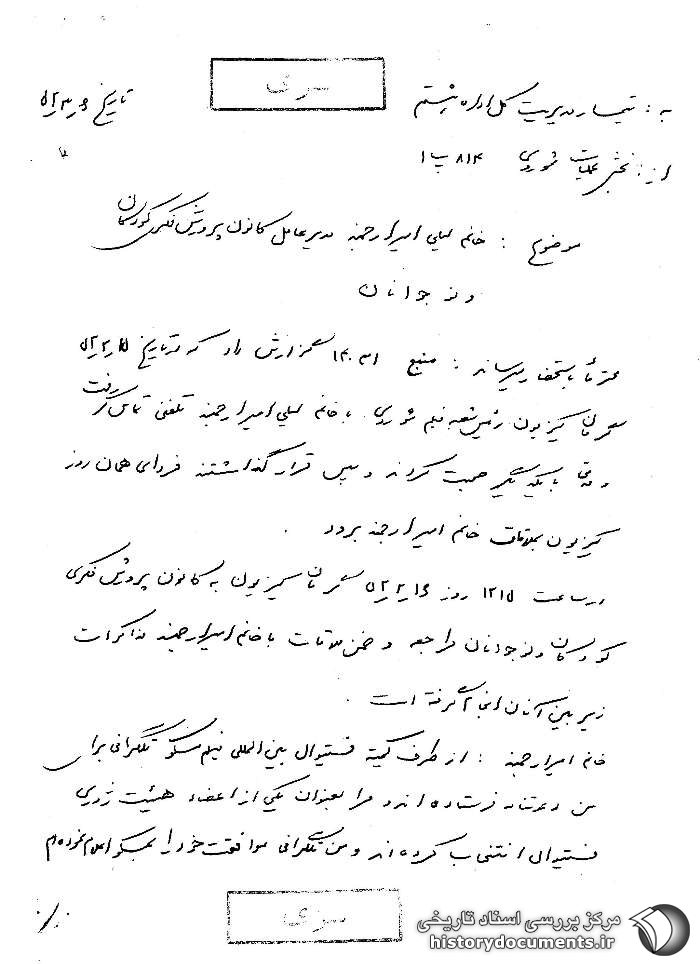 سری
به: تیمسار مدیریت کل اداره هشتم
تاریخ
از: بخش عملیات شوروی ۸۱۴ پ ۱
موضوع: خانم لیلی امیرارجمند مدیرعامل کانون پرورش فکری کودکان
و نوجوانان
محترماً باستحضار میرساند: منبع ۱۴۰۳۱ گزارش داد که در تاریخ
رئیس شعبه فیلم شوروی با خانم لیلی امیرارجمند تلفنی تماس گرفت
و مدتی با یکدیگر صحبت کردند و سپس قرار گذاشتند فردای همان روز
بملاقات خانم امیرارجمند برود.
در ساعت ۱۲۱۵ روز به کانون پرورش فکری
کودکان و نوجوانان مراجعه و ضمن ملاقات با خانم امیرارجمند مذاکرات
زیر بین آنان انجام گرفته است.
خانم امیرارجمند: از طرف کمیته فستیوال بین المللی فیلم مسکو تلگرافی برای
من دعوتنامه فرستاده اند و مرا بعنوان یکی از اعضاء هیئت ژوری
فستیوال انتخاب کرده اند و من تلگرافی موافقت خود را بمسکو اعلام نموده ام
سری
مرکز بررسی اسناد تاریخی
historydocuments.ir